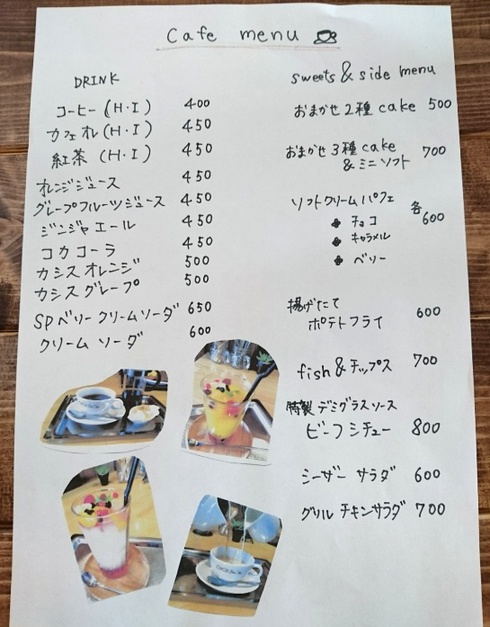 Cafe menu
DRINK
コーヒー (H・I) 400
カフェオレ (H・I) 450
紅茶 (H・I) 450
オレンジジュース 450
グレープフルーツジュース 450
ジンジャエール 450
コカコーラ 450
カシスオレンジ 500
カシスグレープ 500
SPベリークリームソーダ 650
クリームソーダ 600
sweets & side menu
おまかせ2種cake 500
おまかせ3種cake
&ミニソフト 700
ソフトクリームパフェ 各
チョコ 600
キャラメル
ベリー
揚げたて
ポテトフライ 600
fish&チップス 700
特製デミグラスソース
ビーフシチュー 800
シーザーサラダ 600
グリルチキンサラダ 700